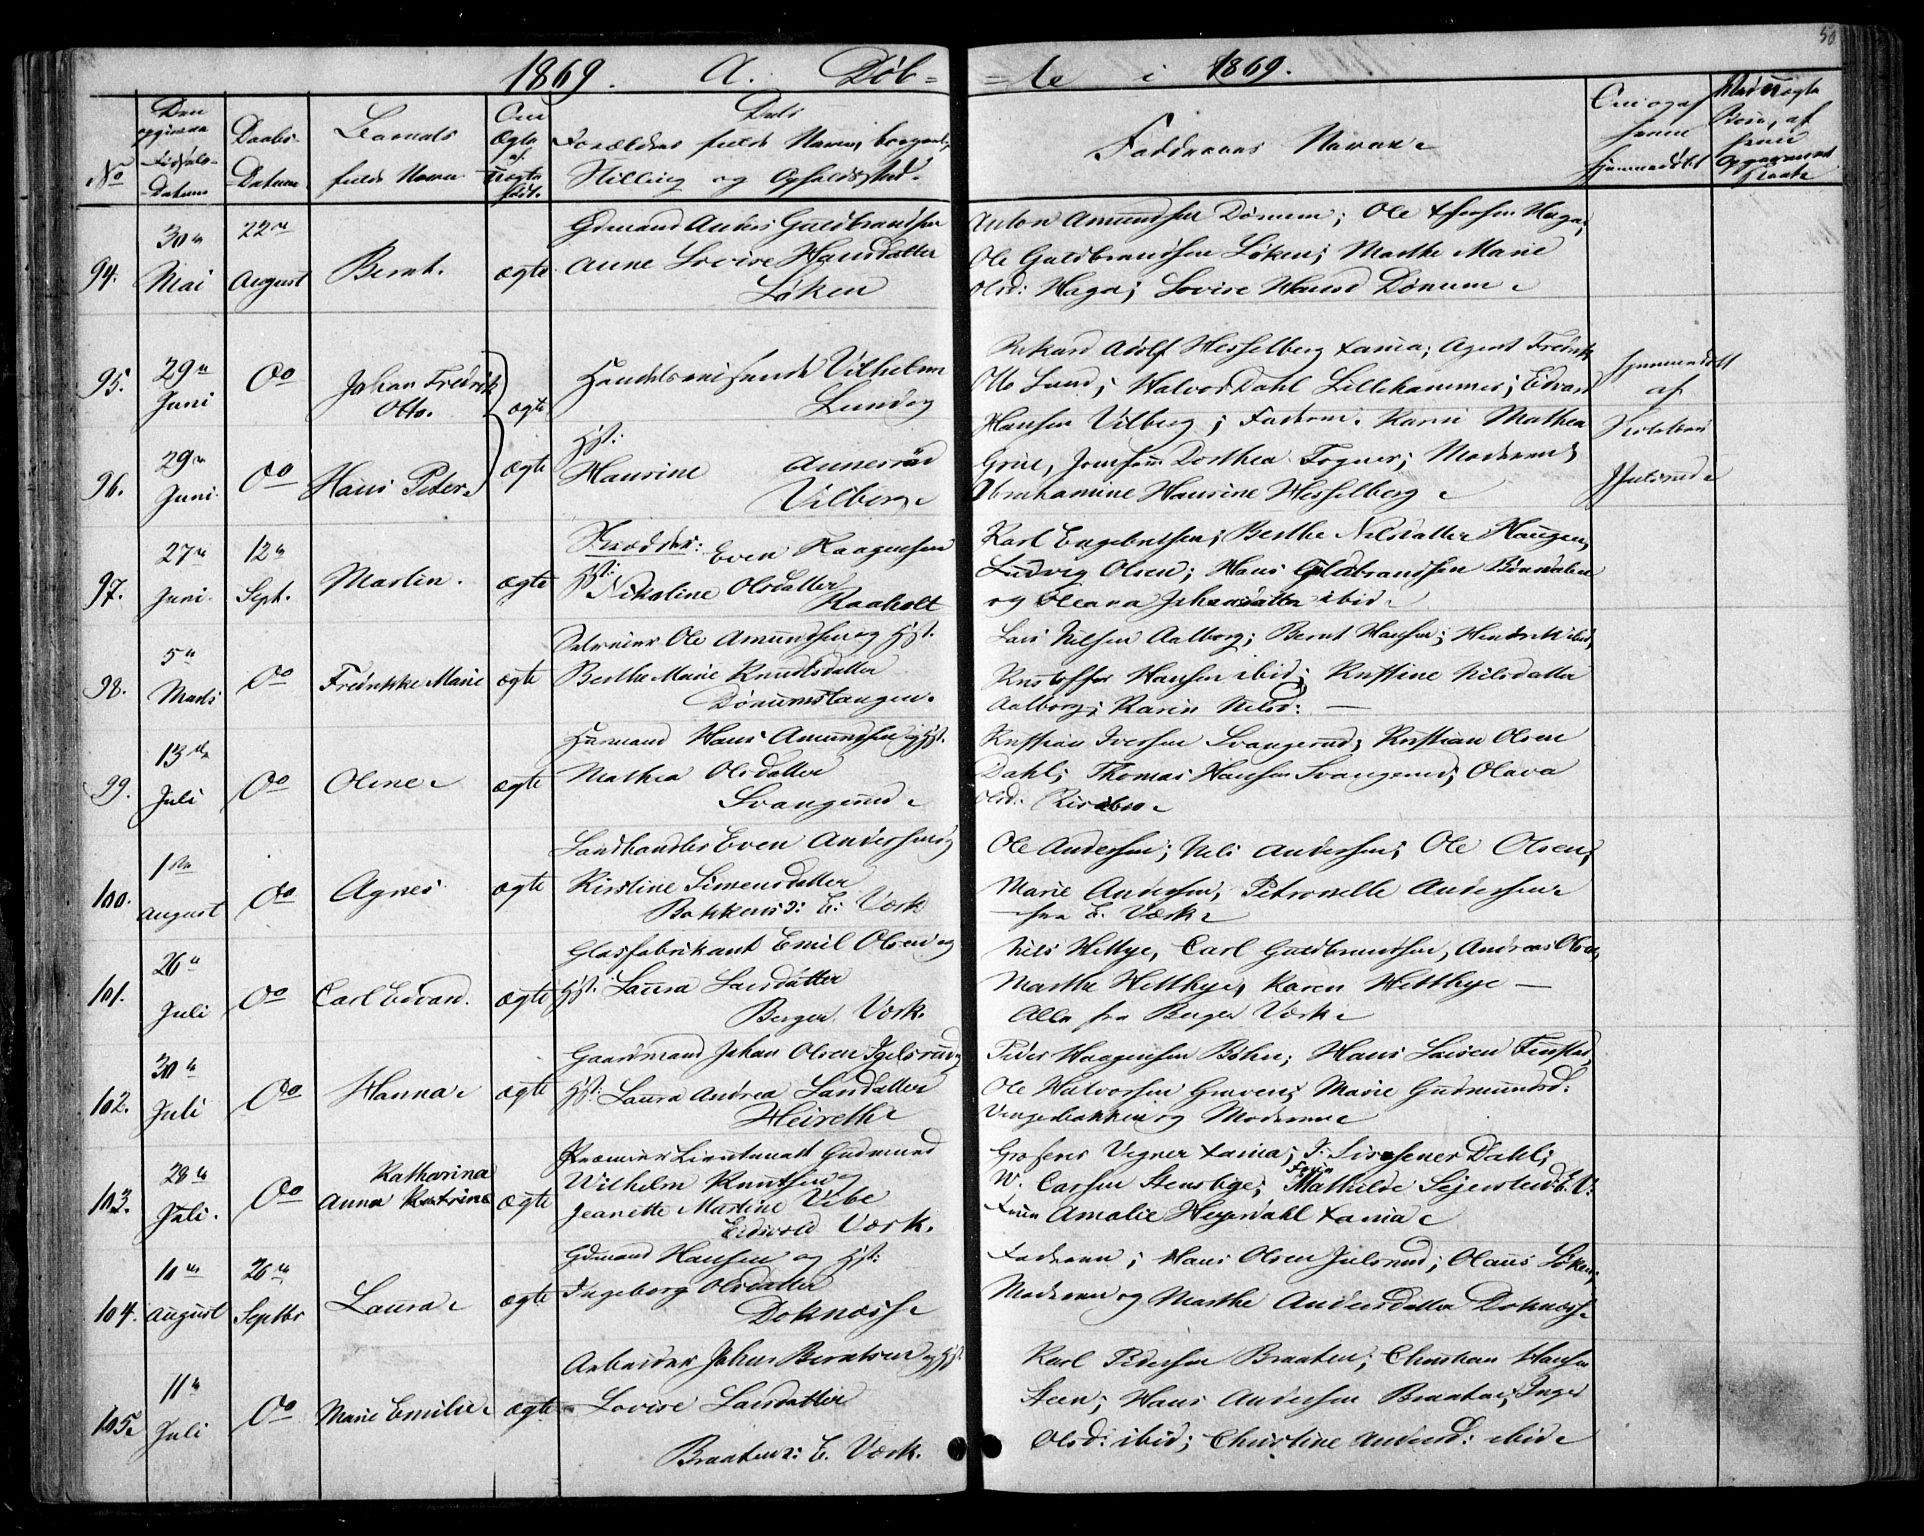 50
1869. A. Døb= =te i 1869.
No
Den opgivne Fødsels-Datum
Daabs-Datum
Barnets fulde Navn
Om ægte el. uægte født.
Forældres fulde Navn, borgerlige Stilling og Opholdssted.
Faddernes Navne
Om og af hvem hjemmedøbt
94. 30te Mai 22de August Bernt. ægte
Anne Lovise Hansdatter
Løken
Anton Amundsen Dønum; Ole Haga;
Ole Guldbrandsen Løken; Marthe Marie
Olsd: Haga; Lovise Hansd Dønum
95. 29de Juni Do Johan Fredrik Otto. ægte
Handelsreisende Vilhelm
Lund og
Rikard Adolf Hesselberg Xania; Agent Fredrik
Otto Lund; Halvor Dahl Lillehammer; Edvard
Hansen Vilberg; Faderen. Karen Mathea
Hjemmedøbt af
96. 29de Juni. Do Hans Peter ægte
Hst: Haurine
Vilberg
Jomfru Dorthea Fogner; Moderen;
Abrahamine Haurine Hesselberg
97. 27de Juni. 12te Sept. Martin. ægte
Skrædder: Even Haagensen
Hst: Nikoline Olsdatter
Raaholt
Karl Engebretsen; Berthe Nilsdatter Haugen,
Ludvig Olsen; Hans Guldbrandsen
og Oleana Johansdatter ibid
98. 5te Marts Do Fredrikke Marie ægte
Ole Amundsen og Hst.
Berthe Marie Knudsdatter
Dønumstangen.
Lars Nilsen Aalborg; Bernt Hansen; Hendrik ibid,
Kristoffer Hansen ibid; Kristine Nilsdatter
Aalborg; Karen Nilsd: —
99. 13de Juli Do Oline ægte
Husmand Hans Amundsen og Hst.
Mathea Olsdatter
Svangerud
Kristian Iversen Svangerud; Kristian Olsen
Dahl; Thomas Hansen Svangerud; Olava
Olsd: Risebro
100. 1ste August Do Agnes ægte
Landhandler Even Andersen og
Kirstine Simensdatter
Bakken v: E: Værk
Ole Andersen; Nils Andersen; Ole Olsen;
Marie Andersen, Petronelle Andersen
fra E. Værk
101. 26de Juli Do Carl Edvard. ægte
Glasfabrikant Emil Olsen og
Hst: Laura Larsdatter
Berger. Værk.
Nils Hettye, Carl Guldbrandsen, Andreas Olsen,
Marthe Hetthye, Karen Hetthye —
Alle fra Berger Værk
102. 30te Juli Do Hanna ægte
Gaardmand Johan Olsen Igelsrud og
Hst: Laura Andrea Larsdatter
Heireth
Peder Haagensen Bøhn; Hans Larsen Finstad,
Ole Halvorsen Graven; Marie Gudmundsd:
Vengerbakken og Moderen
103. 28de Juli. Do Katharina Anna Katrine ægte
Premier Lieutenant Gudmund
Wilhelm Knutsen og
Jeanette Martine Vibe
Eidsvold Værk.
Vigner Xania;
W. Carsen Stensbye; Frøken Mathilde Sejersted E. V:
Fruen Amalie Heyerdahl Xania
104. 10de August 26de Septbr Laura ægte
Gdmand Hansen og Hst:
Ingeborg Olsdatter
Doknæss
Faderen; Hans Olsen Julsrud; Olaus Løken;
Moderen og Marthe Andersdatter Doknæss
105. 11te Juli Do Marie Emilie ægte
Arbeider Johan Berntsen og Hst
Lovise Larsdatter
Braaten v: E. Værk.
Karl Pedersen Braaten; Christian Hansen
Steen; Hans Andersen Braaten; Inger
Olsd: ibid; Christine Andersd: ibid